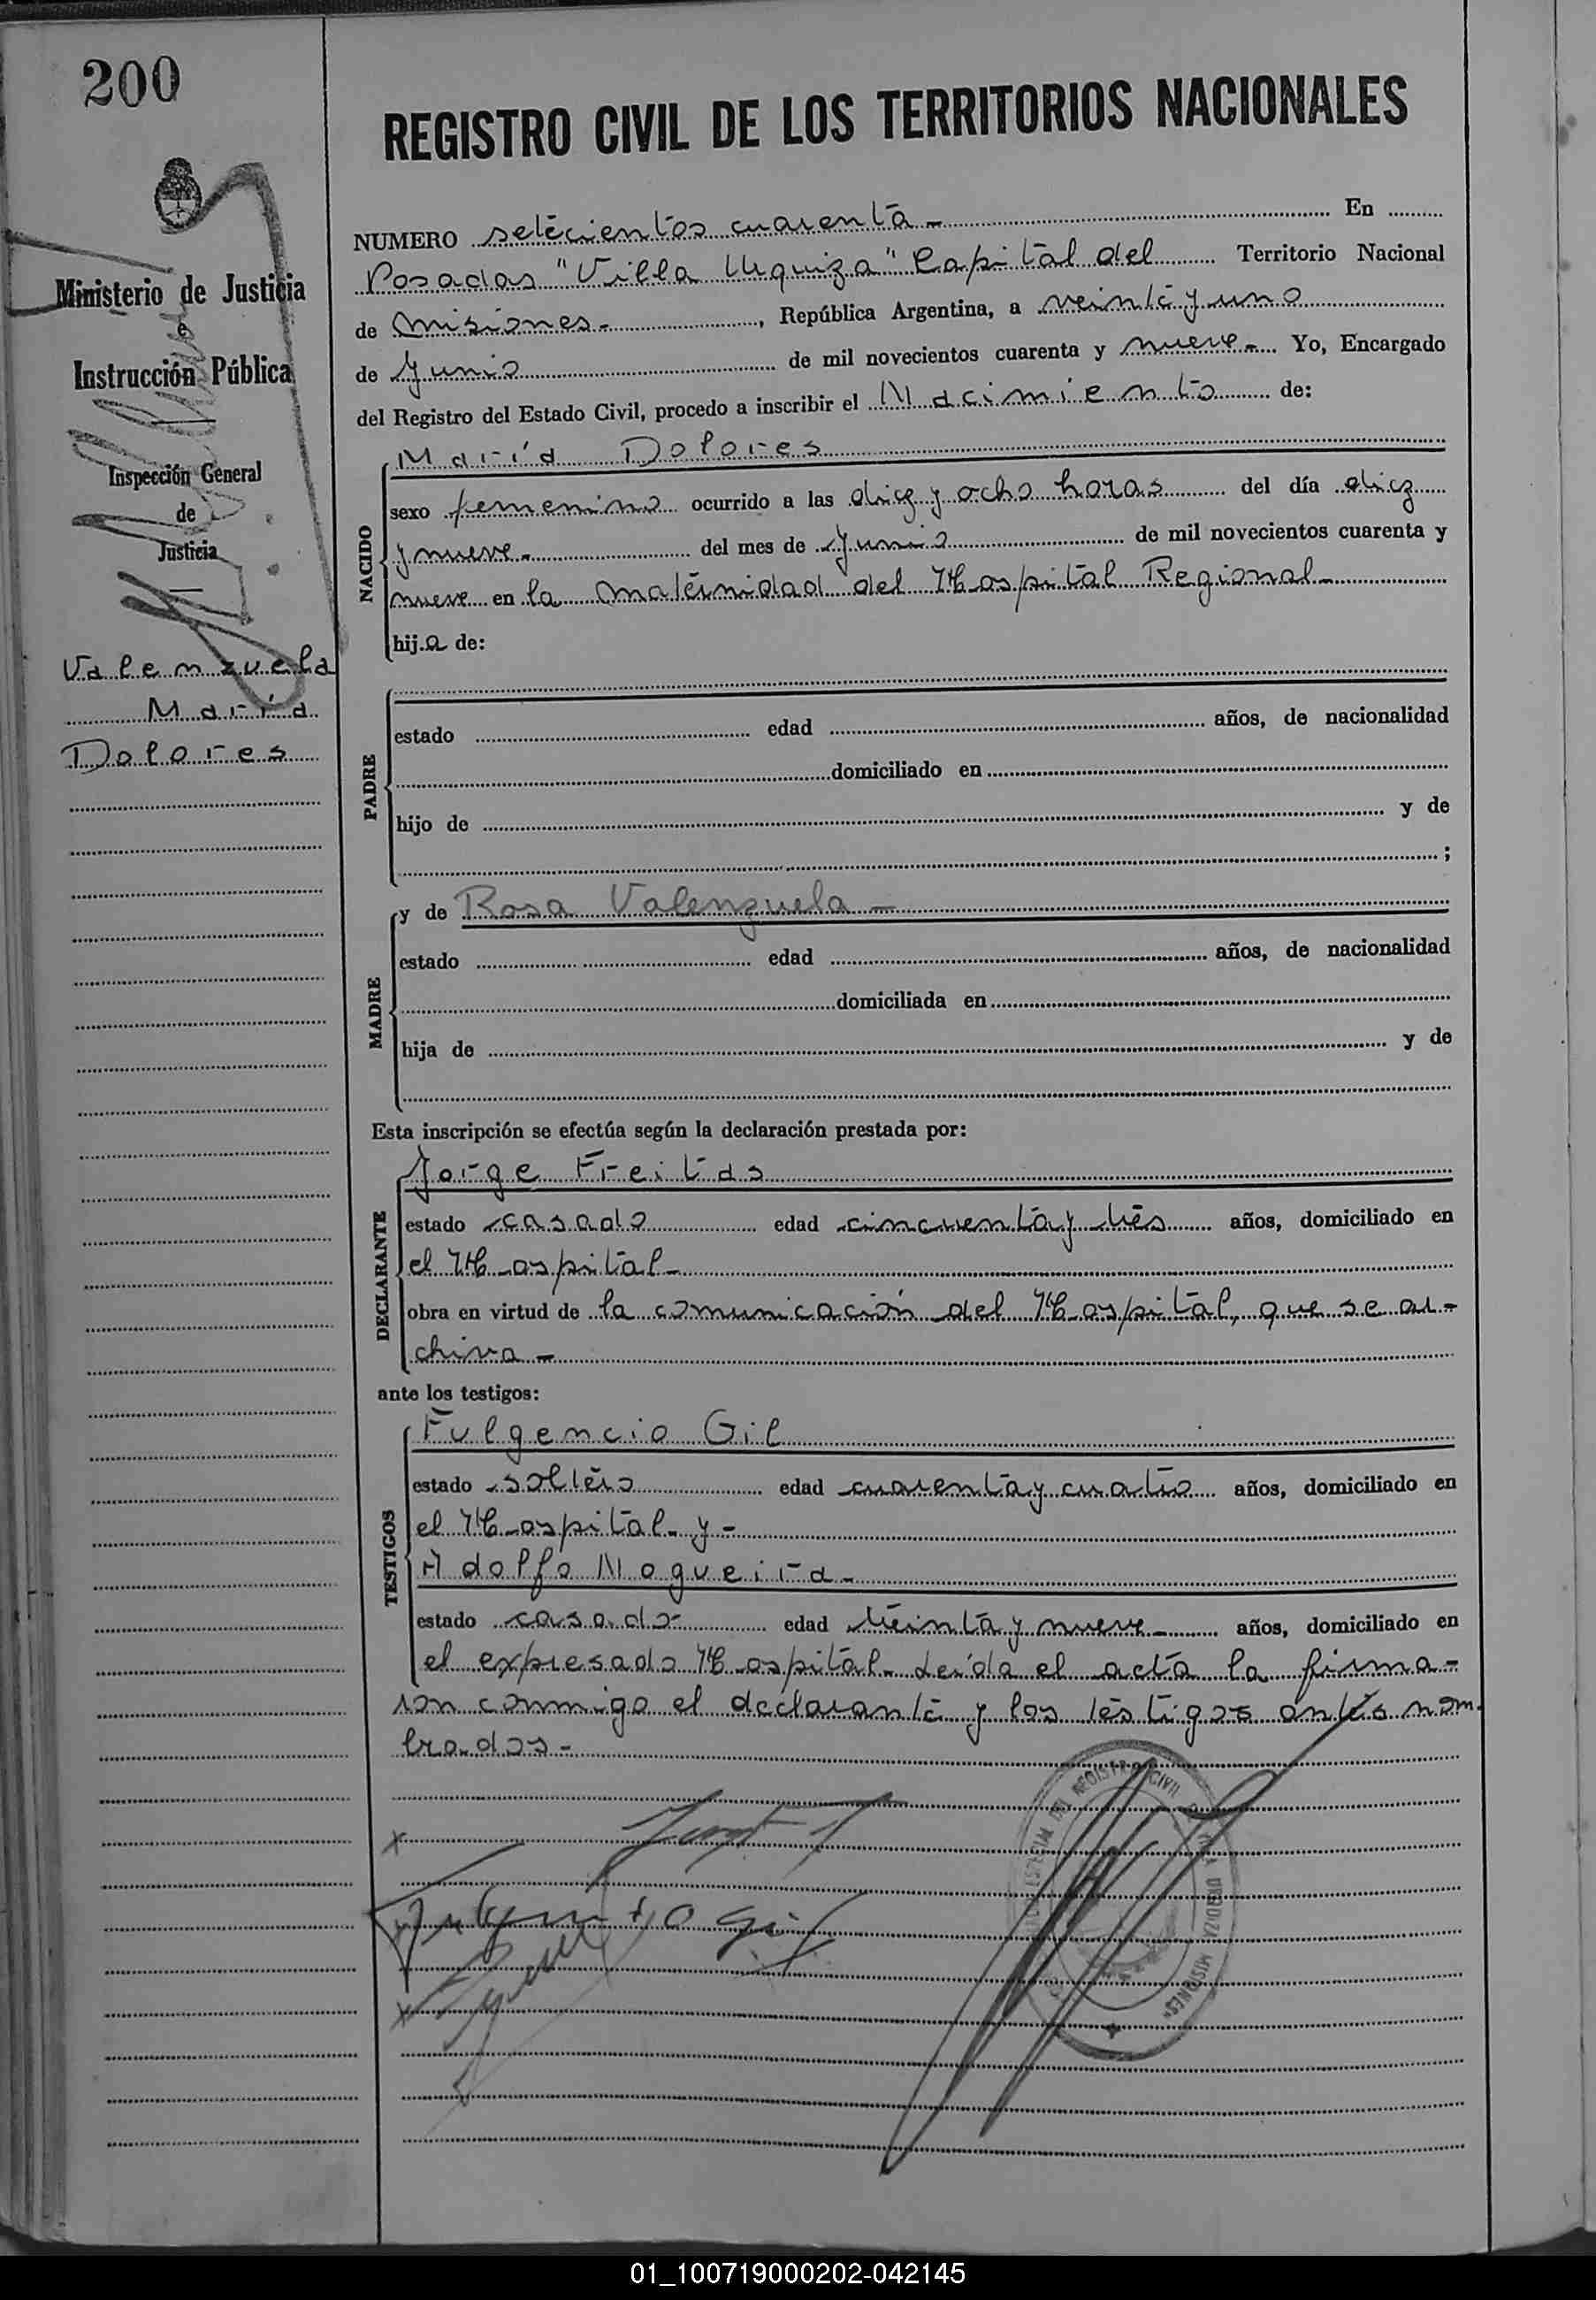 200
Ministerio de Justicia
e
Instrucción Pública
Inspección General
de
Justicia
Valenzuela
María
Dolores
REGISTRO CIVIL DE LOS TERRITORIOS NACIONALES
NUMERO setecientos cuarenta - En
Posadas "Villa Urquiza" Capital del Territorio Nacional
de Misiones - , República Argentina, a veinte y uno
de Junio de mil novecientos cuarenta y nueve - Yo, Encargado
del Registro del Estado Civil, procedo a inscribir el Nacimiento de:
NACIDO
María Dolores
sexo femenino ocurrido a las diez y ocho horas del día diez
y nueve - del mes de Junio de mil novecientos cuarenta y
nueve en la maternidad del Hospital Regional -
hija de:
PADRE
estado edad años, de nacionalidad
domiciliado en
hijo de y de
;
MADRE
y de Rosa Valenzuela -
estado edad años, de nacionalidad
domiciliada en
hija de y de
Esta inscripción se efectúa según la declaración prestada por:
DECLARANTE
Jorge Freitas
estado casado edad cincuenta y tres años, domiciliado en
el Hospital -
obra en virtud de la comunicación del Hospital, que se ar-
chiva -
ante los testigos:
TESTIGOS
Fulgencio Gil
estado soltero edad cuarenta y cuatro años, domiciliado en
el Hospital - y -
Adolfo Nogueira -
estado casado - edad treinta y nueve - años, domiciliado en
el expresado Hospital - Leída el acta la firma-
ron conmigo el declarante y los testigos antes nom-
brados -
x
Fulgencio Gil
x
REGISTRO CIVIL
URQUIZA MISIONES
01_100719000202-042145